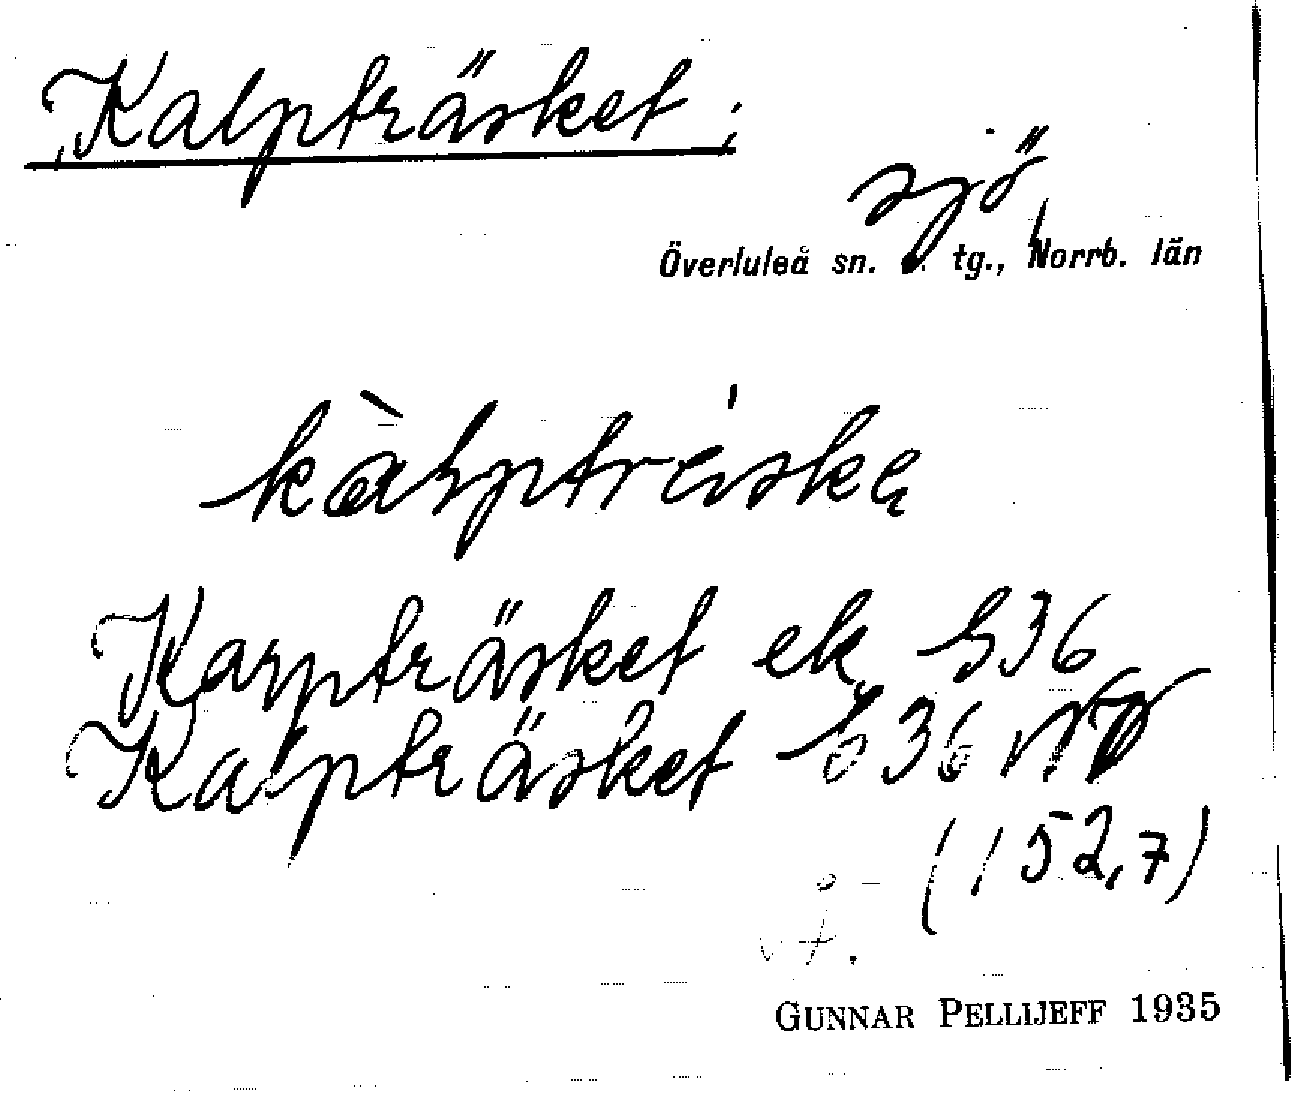 Kalpträsket;
sjö,
Överluleå sn. tg., Norrb. län
Karpträsket ek h36
Kalpträsket b36
(152,7)
GUNNAR PELLIJEFF 1935